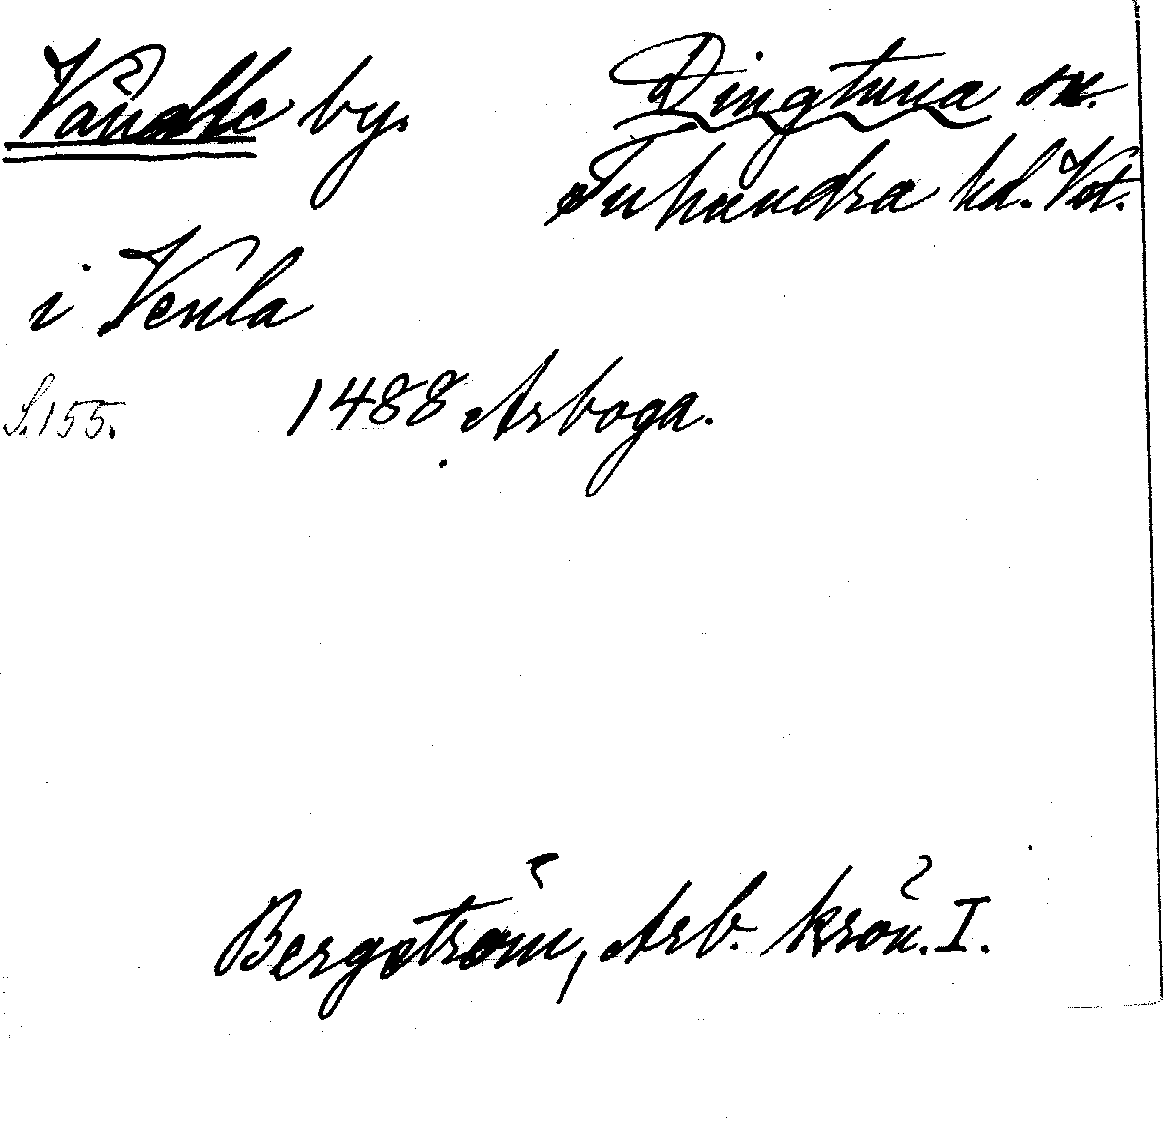 Vändle by. Dingtuna sn.
Tuhundra hd. Vstm.
i Venla
S. 155. 1488 Arboga.
Bergström, Arb. krön. I.